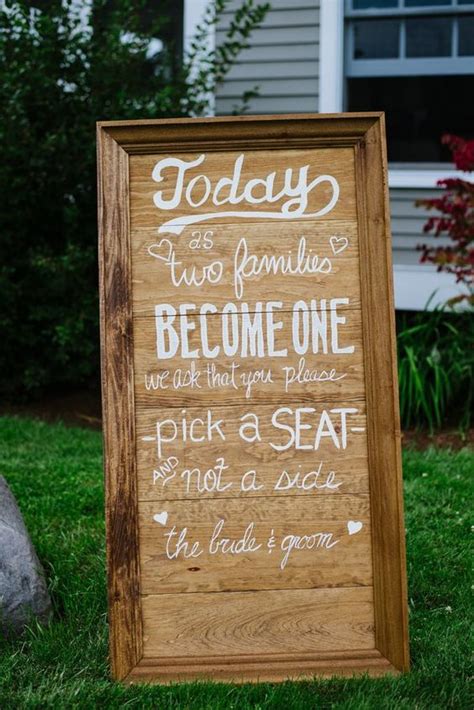 Today
as
two families
BECOME ONE
we ask that you please
-pick a SEAT-
AND not a side
the bride & groom